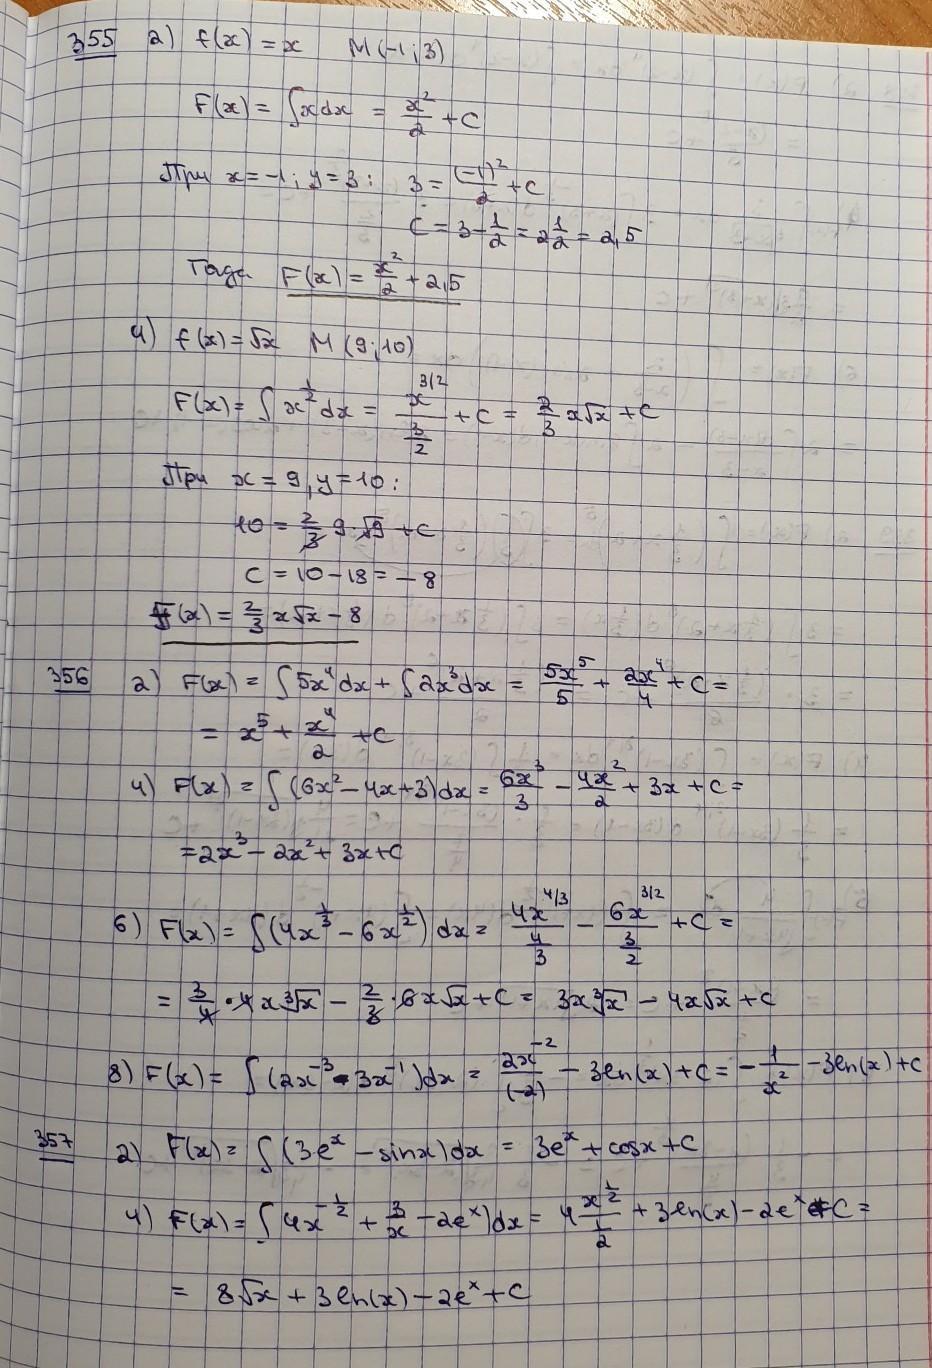 355 2) f(x) = x M(-1; 3)
F(x) = ∫xdx = x²/2 + C
При x = -1; y = 3: 3 = (-1)²/2 + C
C = 3 - 1/2 = 2 1/2 = 2,5
Тогда F(x) = x²/2 + 2,5
4) f(x) = √x M(9; 10)
F(x) = ∫ x^(1/2) dx = x^(3/2)/(3/2) + C = 2/3 x√x + C
При x = 9, y = 10:
10 = 2/3 9·√9 + C
C = 10 - 18 = -8
F(x) = 2/3 x√x - 8
356 2) F(x) = ∫5x⁴dx + ∫2x³dx = 5x⁵/5 + 2x⁴/4 + C =
= x⁵ + x⁴/2 + C
4) F(x) = ∫(6x² - 4x + 3)dx = 6x³/3 - 4x²/2 + 3x + C =
= 2x³ - 2x² + 3x + C
6) F(x) = ∫(4x^(1/3) - 6x^(1/2)) dx = 4x^(4/3)/(4/3) - 6x^(3/2)/(3/2) + C =
= 3/4 · 4x∛x - 2/3 · 6x√x + C = 3x∛x - 4x√x + C
8) F(x) = ∫(2x⁻³ - 3x⁻¹)dx = 2x⁻²/(-2) - 3ln(x) + C = -1/x² - 3ln(x) + C
357 2) F(x) = ∫(3eˣ - sinx)dx = 3eˣ + cosx + C
4) F(x) = ∫4x^(-1/2) + 3/x - 2eˣ)dx = 4 x^(1/2)/(1/2) + 3ln(x) - 2eˣ + C =
= 8√x + 3ln(x) - 2eˣ + C